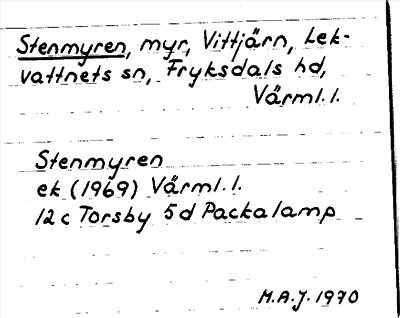 Stenmyren, myr, Vittjärn, Lek-
vattnets sn, Fryksdals hd,
Värml. l.
Stenmyren
ek (1969) Värml. l.
12 c Torsby 5 d Packalamp
M.A.J. 1970